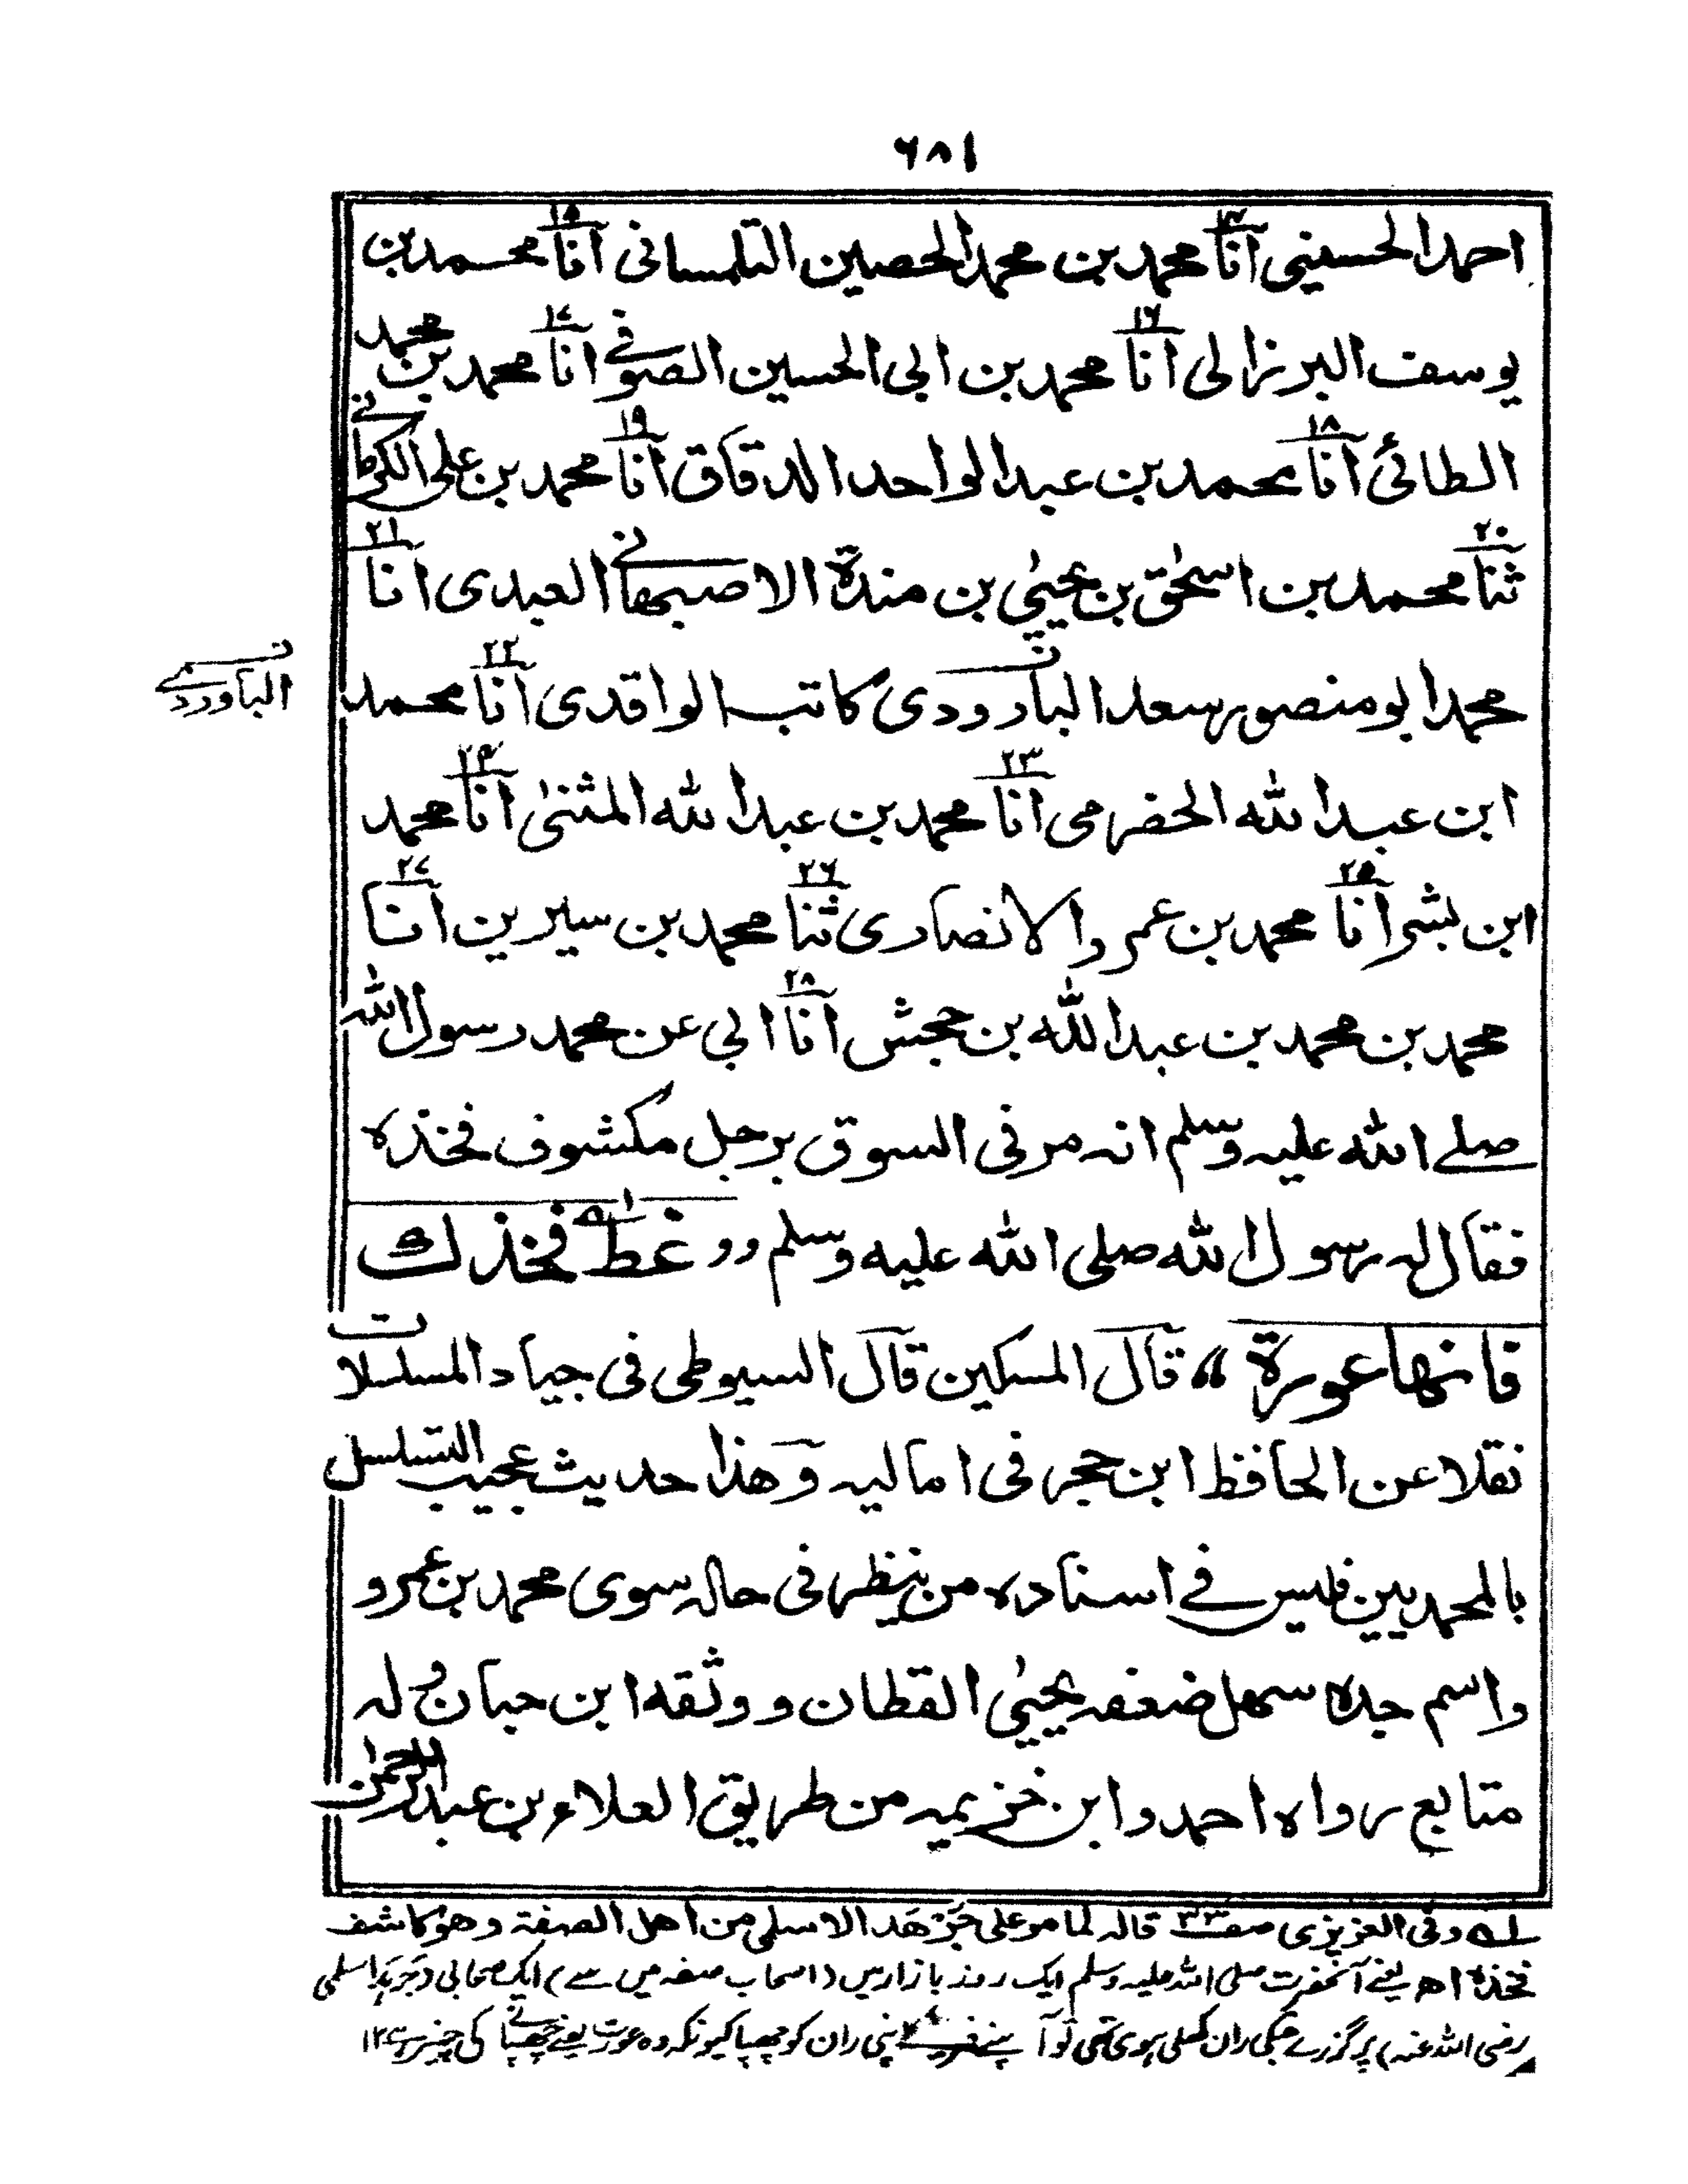 ۶۸۱
احمد الحسینی انا۱۴ محمد بن محمد الحصین التلمسانی انا۱۵ محمد بن
یوسف البرزالی انا۱۶ محمد بن ابی الحسین الصوفی انا۱۷ محمد بن محمد
الطائی انا۱۸ محمد بن عبد الواحد الدقاق انا۱۹ محمد بن علی الکرانی
ثنا۲۰ محمد بن اسحٰق بن یحییٰ بن مندة الاصبهانی العبدی انا۲۱
محمد ابو منصور سعد البارودی کاتب الواقدی انا۲۲ محمد
الباوردی
ابن عبد الله الحضرمی انا۲۳ محمد بن عبد الله المثنیٰ انا۲۴ محمد
ابن بشر انا۲۵ محمد بن عمرو الانصاری ثنا۲۶ محمد بن سیرین انا۲۷
محمد بن محمد بن عبد الله بن حجش انا۲۸ ابی عن محمد رسول الله
صلے الله علیه وسلم انه مر فی السوق برجل مکشوف فخذه
فقال له رسول الله صلی الله علیه وسلم ،، غط۱ه فخذك
فانها عورة ،، قال المسکین قال السیوطی فی جیاد المسلسلات
نقلا عن الحافظ ابن حجر فی امالیه وهذا حدیث عجیب التسلسل
بالمحمدیین فلیس فے اسناده من ینظر فی حاله سوی محمد بن عمرو
واسم جده سهل ضعفه یحییٰ القطان ووثقه ابن حبان وله
متابع رواه احمد وابن خزیمه من طریق العلاء بن عبد الرحمٰن
۱ه وفی العزیزی صف۳۳ قاله لما مر علی جَرْهَد الاسلمی من اهل الصفة وهو کاشف
فخذه اھ یعنے آنحضرت صلی الله علیه وسلم ایک روز بازار میں (اصحاب صفه میں سے) ایک صحابی (جَرہَد اسلمی
رضی الله عنه) پر گزرے جنکی ران کھلی ہوی تھی تو آپنے فرمایا اپنی ران کو چھپا کیونکہ وہ عورت یعنے چھپانے کی چیز ہے ۱۲